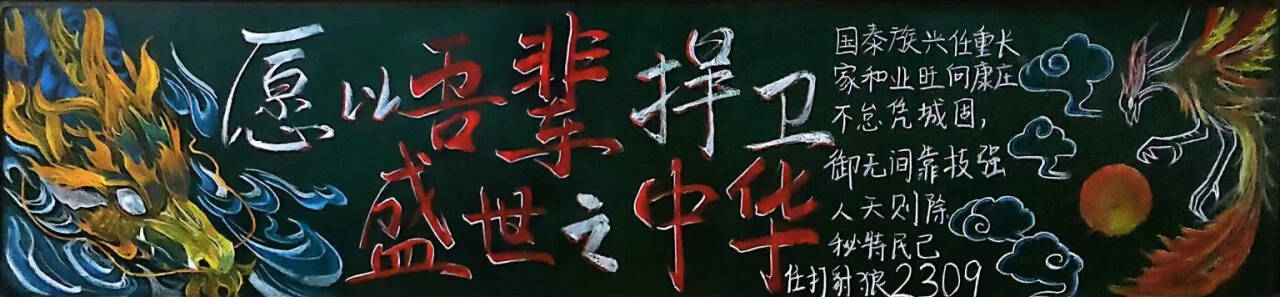 愿以吾辈捍卫
盛世之中华
国泰族兴任重长
家和业旺向康庄
不怠凭城固,
御无间靠技强
人天则除
秘特民己
仕打射狼2309